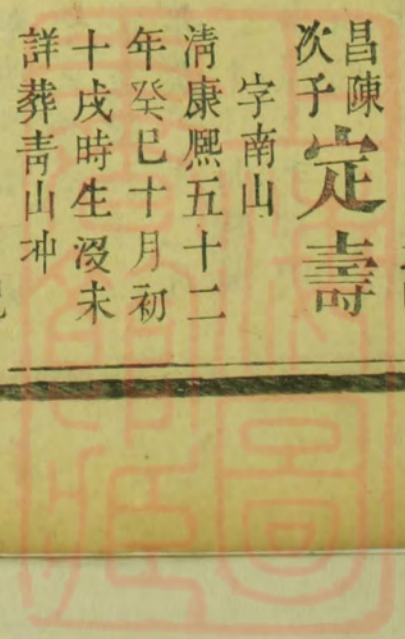 昌陳
次子
定壽
字南山
清康熙五十二
年癸巳十月初
十戌時生歿未
詳葬青山冲